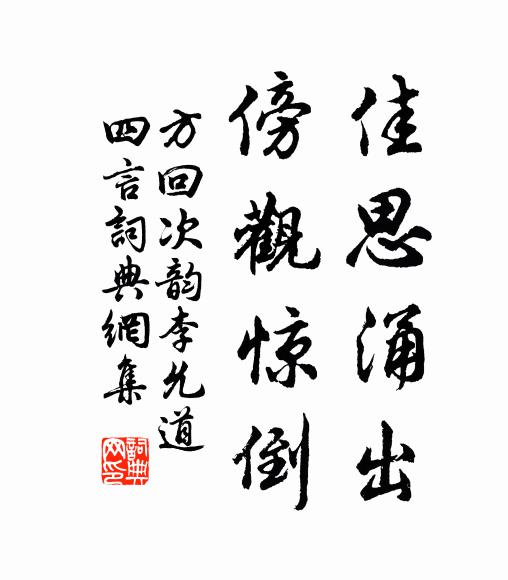 佳思涌出
傍觀惊倒
方回次韵李允道
四言詞典網集
詞典
网印